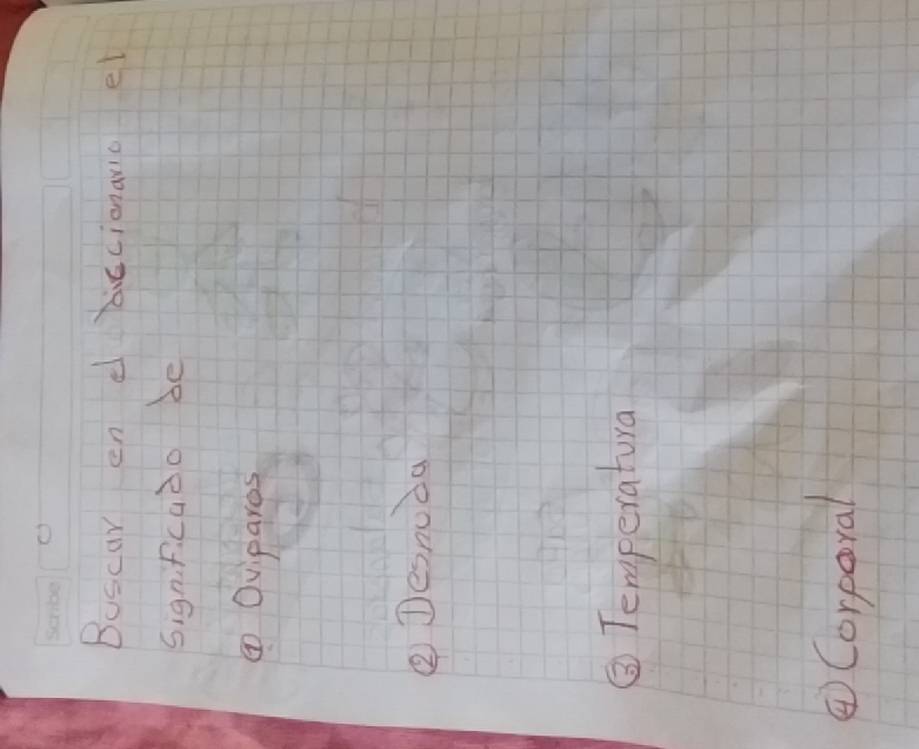 Scribe
Buscar en el diccionario el
significado de
① Oviparos
② Desnuda
③ Temperatura
④ Corporal